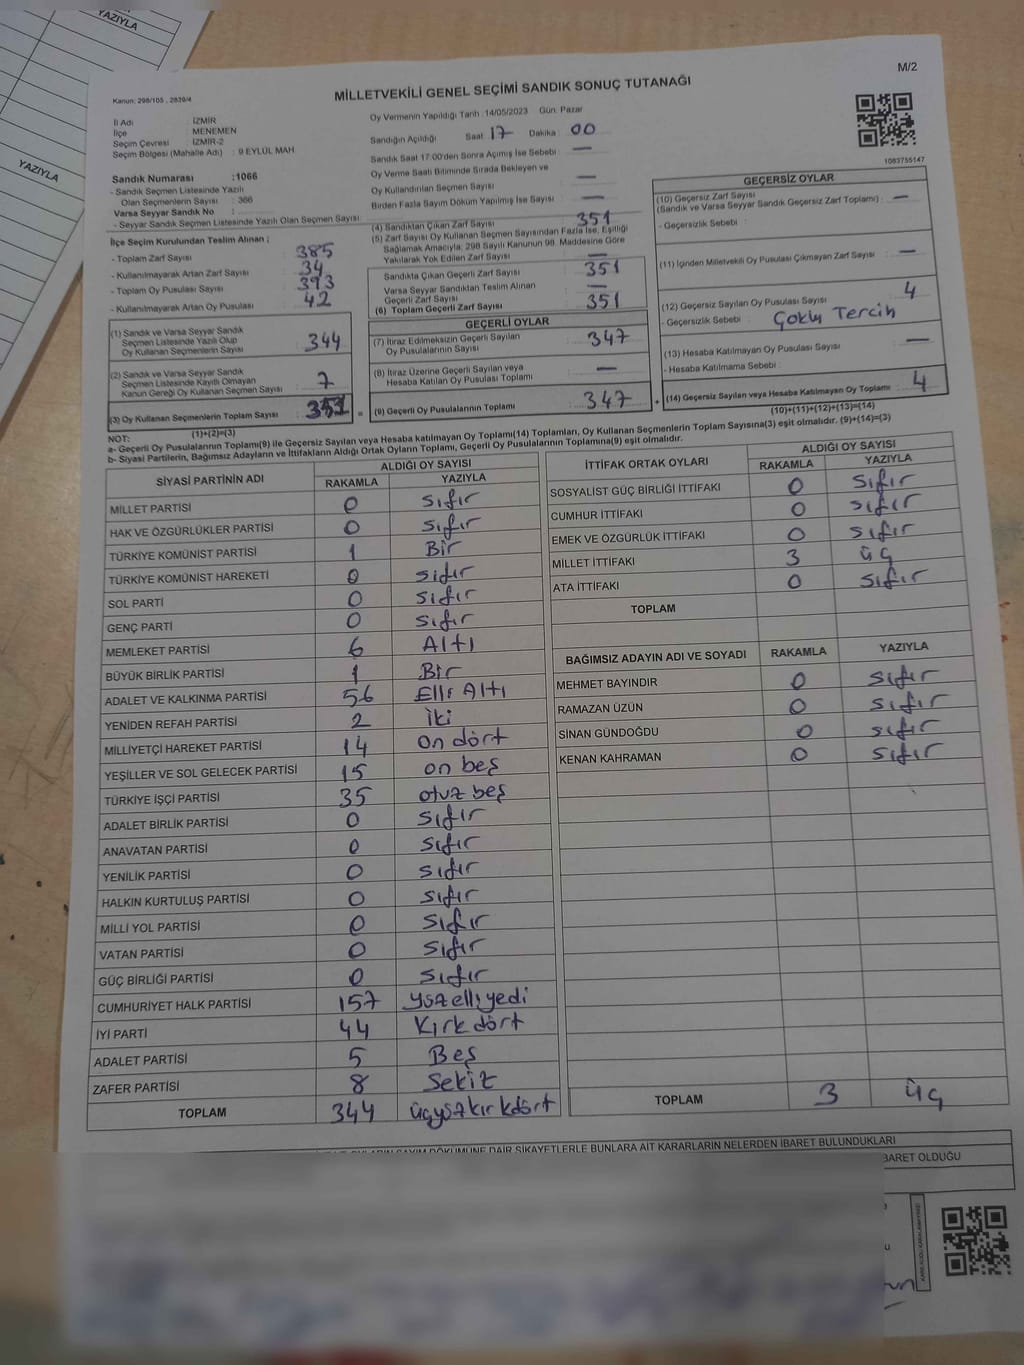 YAZIYLA
YAZIYLA
M/2
Kanun: 298/105 , 2839/4
MİLLETVEKİLİ GENEL SEÇİMİ SANDIK SONUÇ TUTANAĞI
İl Adı : İZMİR
İlçe : MENEMEN
Seçim Çevresi : İZMİR-2
Seçim Bölgesi (Mahalle Adı) : 9 EYLÜL MAH
Oy Vermenin Yapıldığı Tarih :14/05/2023 Gün: Pazar
Sandığın Açıldığı Saat : 17 Dakika : 00
Sandık Saat 17:00'den Sonra Açımış İse Sebebi : —
Oy Verme Saati Bitiminde Sırada Bekleyen ve
Oy Kullandırılan Seçmen Sayısı : —
Birden Fazla Sayım Döküm Yapılmış İse Sayısı : —
1083755147
Sandık Numarası :1066
- Sandık Seçmen Listesinde Yazılı
Olan Seçmenlerin Sayısı : 366
Varsa Seyyar Sandık No :
- Seyyar Sandık Seçmen Listesinde Yazılı Olan Seçmen Sayısı :
İlçe Seçim Kurulundan Teslim Alınan ;
- Toplam Zarf Sayısı : 385
- Kullanılmayarak Artan Zarf Sayısı : 34
- Toplam Oy Pusulası Sayısı : 393
- Kullanılmayarak Artan Oy Pusulası : 42
(1) Sandık ve Varsa Seyyar Sandık
Seçmen Listesinde Yazılı Olup
Oy Kullanan Seçmenlerin Sayısı : 344
(2) Sandık ve Varsa Seyyar Sandık
Seçmen Listesinde Kayıtlı Olmayan
Kanun Gereği Oy Kullanan Seçmen Sayısı : 7
(3) Oy Kullanan Seçmenlerin Toplam Sayısı : 351
(1)+(2)=(3)
(4) Sandıktan Çıkan Zarf Sayısı : 351
(5) Zarf Sayısı Oy Kullanan Seçmen Sayısından Fazla İse, Eşitliği
Sağlamak Amacıyla; 298 Sayılı Kanunun 98. Maddesine Göre
Yakılarak Yok Edilen Zarf Sayısı : —
Sandıkta Çıkan Geçerli Zarf Sayısı : 351
Varsa Seyyar Sandıktan Teslim Alınan
Geçerli Zarf Sayısı : —
(6) Toplam Geçerli Zarf Sayısı : 351
GEÇERLİ OYLAR
(7) İtiraz Edilmeksizin Geçerli Sayılan
Oy Pusulalarının Sayısı : 347
(8) İtiraz Üzerine Geçerli Sayılan veya
Hesaba Katılan Oy Pusulası Toplamı : —
= (9) Geçerli Oy Pusulalarının Toplamı : 347 +
GEÇERSİZ OYLAR
(10) Geçersiz Zarf Sayısı
(Sandık ve Varsa Seyyar Sandık Geçersiz Zarf Toplamı) : —
- Geçersizlik Sebebi :
(11) İçinden Milletvekili Oy Pusulası Çıkmayan Zarf Sayısı : —
(12) Geçersiz Sayılan Oy Pusulası Sayısı : 4
- Geçersizlik Sebebi : Çoklu Tercih
(13) Hesaba Katılmayan Oy Pusulası Sayısı : —
- Hesaba Katılmama Sebebi :
(14) Geçersiz Sayılan veya Hesaba Katılmayan Oy Toplamı : 4
(10)+(11)+(12)+(13)=(14)
NOT:
a- Geçerli Oy Pusulalarının Toplamı(9) ile Geçersiz Sayılan veya Hesaba katılmayan Oy Toplamı(14) Toplamları, Oy Kullanan Seçmenlerin Toplam Sayısına(3) eşit olmalıdır. (9)+(14)=(3)
b- Siyasi Partilerin, Bağımsız Adayların ve İttifakların Aldığı Ortak Oyların Toplamı, Geçerli Oy Pusulalarının Toplamına(9) eşit olmalıdır.
SİYASİ PARTİNİN ADI ALDIĞI OY SAYISI
RAKAMLA YAZIYLA
MİLLET PARTİSİ 0 sıfır
HAK VE ÖZGÜRLÜKLER PARTİSİ 0 sıfır
TÜRKİYE KOMÜNİST PARTİSİ 1 Bir
TÜRKİYE KOMÜNİST HAREKETİ 0 sıfır
SOL PARTİ 0 sıfır
GENÇ PARTİ 0 sıfır
MEMLEKET PARTİSİ 6 Altı
BÜYÜK BİRLİK PARTİSİ 1 Bir
ADALET VE KALKINMA PARTİSİ 56 Elli Altı
YENİDEN REFAH PARTİSİ 2 iki
MİLLİYETÇİ HAREKET PARTİSİ 14 on dört
YEŞİLLER VE SOL GELECEK PARTİSİ 15 on beş
TÜRKİYE İŞÇİ PARTİSİ 35 otuz beş
ADALET BİRLİK PARTİSİ 0 sıfır
ANAVATAN PARTİSİ 0 sıfır
YENİLİK PARTİSİ 0 sıfır
HALKIN KURTULUŞ PARTİSİ 0 sıfır
MİLLİ YOL PARTİSİ 0 sıfır
VATAN PARTİSİ 0 sıfır
GÜÇ BİRLİĞİ PARTİSİ 0 sıfır
CUMHURİYET HALK PARTİSİ 157 yüz elli yedi
İYİ PARTİ 44 Kırk dört
ADALET PARTİSİ 5 Beş
ZAFER PARTİSİ 8 Sekiz
TOPLAM 344 üçyüz kırk dört
İTTİFAK ORTAK OYLARI ALDIĞI OY SAYISI
RAKAMLA YAZIYLA
SOSYALİST GÜÇ BİRLİĞİ İTTİFAKI 0 sıfır
CUMHUR İTTİFAKI 0 sıfır
EMEK VE ÖZGÜRLÜK İTTİFAKI 0 sıfır
MİLLET İTTİFAKI 3 üç
ATA İTTİFAKI 0 sıfır
TOPLAM
BAĞIMSIZ ADAYIN ADI VE SOYADI RAKAMLA YAZIYLA
MEHMET BAYINDIR 0 sıfır
RAMAZAN ÜZÜN 0 sıfır
SİNAN GÜNDOĞDU 0 sıfır
KENAN KAHRAMAN 0 sıfır
TOPLAM 3 üç
DÖKÜMÜNE DAİR ŞİKAYETLERLE BUNLARA AİT KARARLARIN NELERDEN İBARET BULUNDUKLARI
BARET OLDUĞU